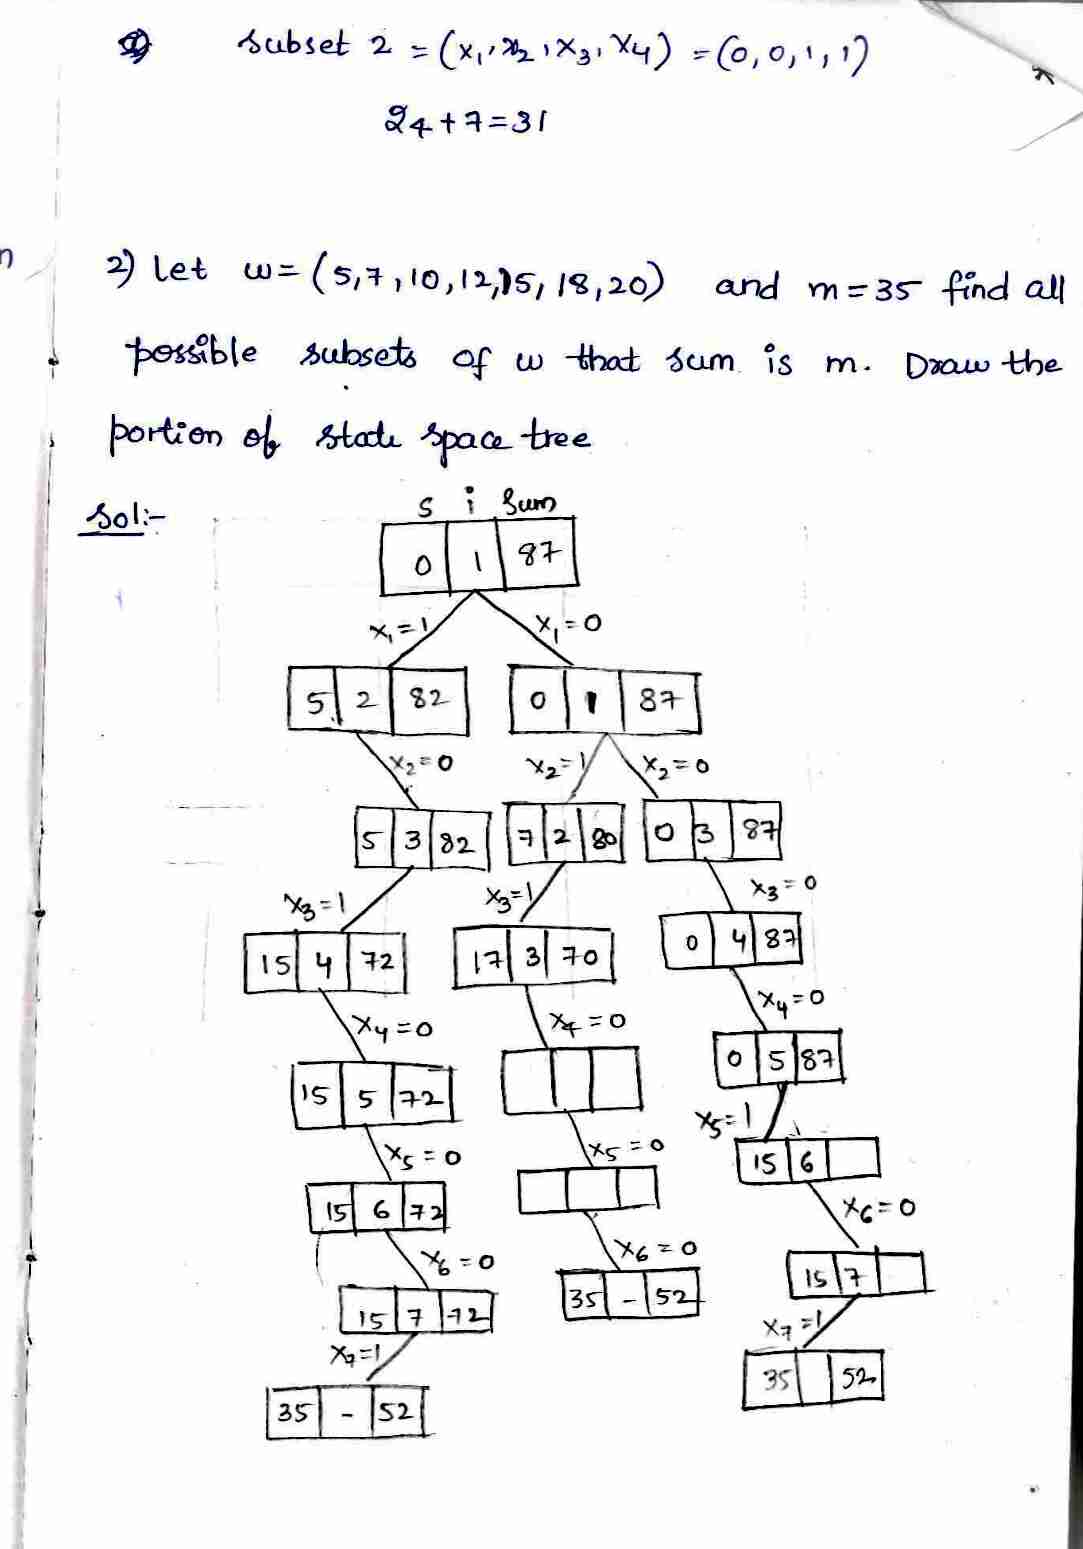 subset 2 = (x₁, x₂, x₃, x₄) = (0, 0, 1, 1)
24 + 7 = 31
n
2) Let w = (5, 7, 10, 12, 15, 18, 20) and m = 35 find all
possible subsets of w that sum is m. Draw the
portion of state space tree
Sol:-
S i Sum
0 1 87
x₁=1 x₁=0
5 2 82 0 1 87
x₂=0 x₂=1 x₂=0
5 3 82 7 2 80 0 3 87
x₃=1 x₃=1 x₃=0
15 4 72 17 3 70 0 4 87
x₄=0 x₄=0 x₄=0
15 5 72 0 5 87
x₅=0 x₅=0 x₅=1
15 6 72 15 6
x₆=0 x₆=0 x₆=0
15 7 72 35 - 52 15 7
x₇=1 x₇=1
35 - 52 35 52